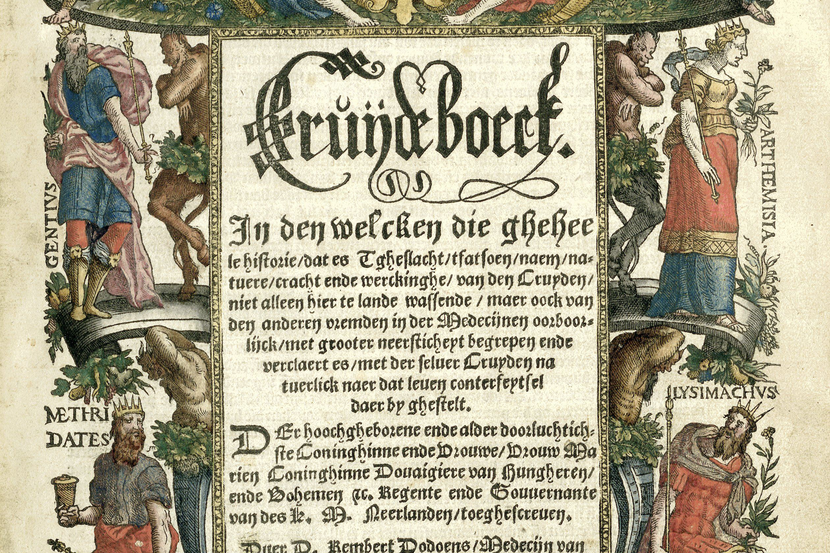 Cruijdeboeck.
In den welcken die gheheele
le historie/dat es Tgheslacht/tfatsoen/naem/na-
tuere/cracht ende werckinghe/van den Cruyden/
niet alleen hier te lande wassende/maer oock van
den anderen vremden in der Medecijnen oorboor-
lijck/met grooter neersticheyt begrepen ende
verclaert es/met der seluer Cruyden na
tuerlick naer dat leuen conterfeytsel
daer by ghestelt.
DEr hoochgheborene ende alder doorluchtich-
ste Coninghinne ende Vrouwe/Vrouw Ma
rien Coninghinne Douaigiere van Hungheren/
ende Bohemen &c. Regente ende Gouuernante
van des K. M. Neerlanden/toeghescreuen.
Duer D. Rembert Dodoens/Medecijn van
GENTIVS
ARTHEMISIA.
METHRI
DATES
LYSIMACHVS